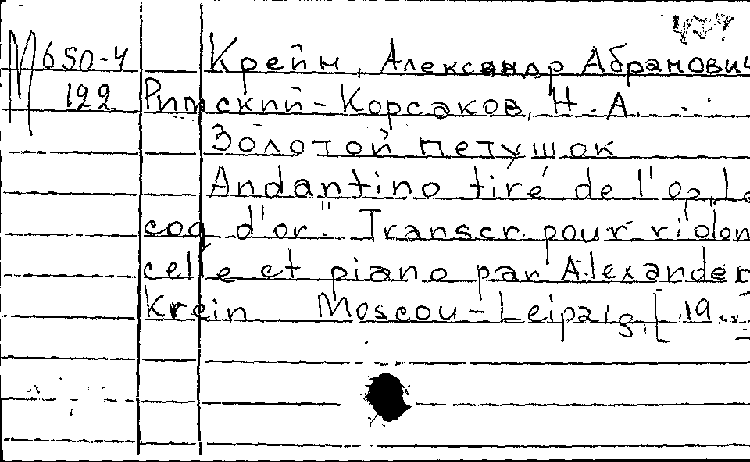 М 650-4 Крейн, Александр Абрамович
122 Римский-Корсаков, Н. А. . . .
Золотой петушок
Andantino tiré de l'op „Le
coq d'or." Transcr. pour violon-
celle et piano par Alexander
Krein Moscou-Leipzig, [19..]